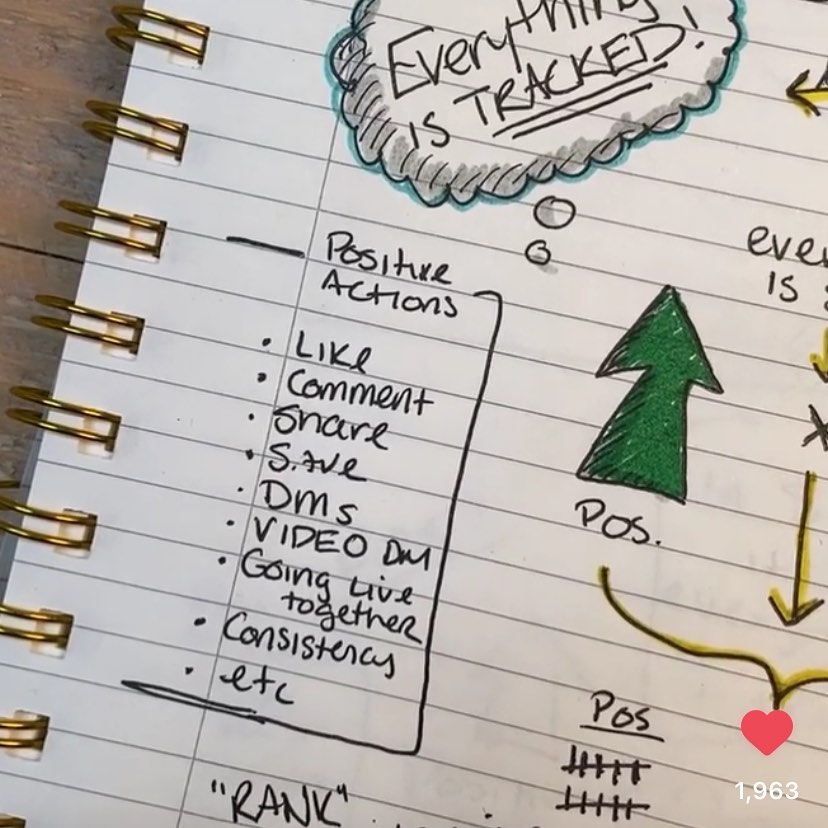 Everything
IS TRACKED!
Positive
Actions
• Like
• Comment
• Share
• Save
• DMs
• VIDEO DM
• Going Live
together
• Consistency
• etc
Pos.
IS
Pos
"RANK"
1,963